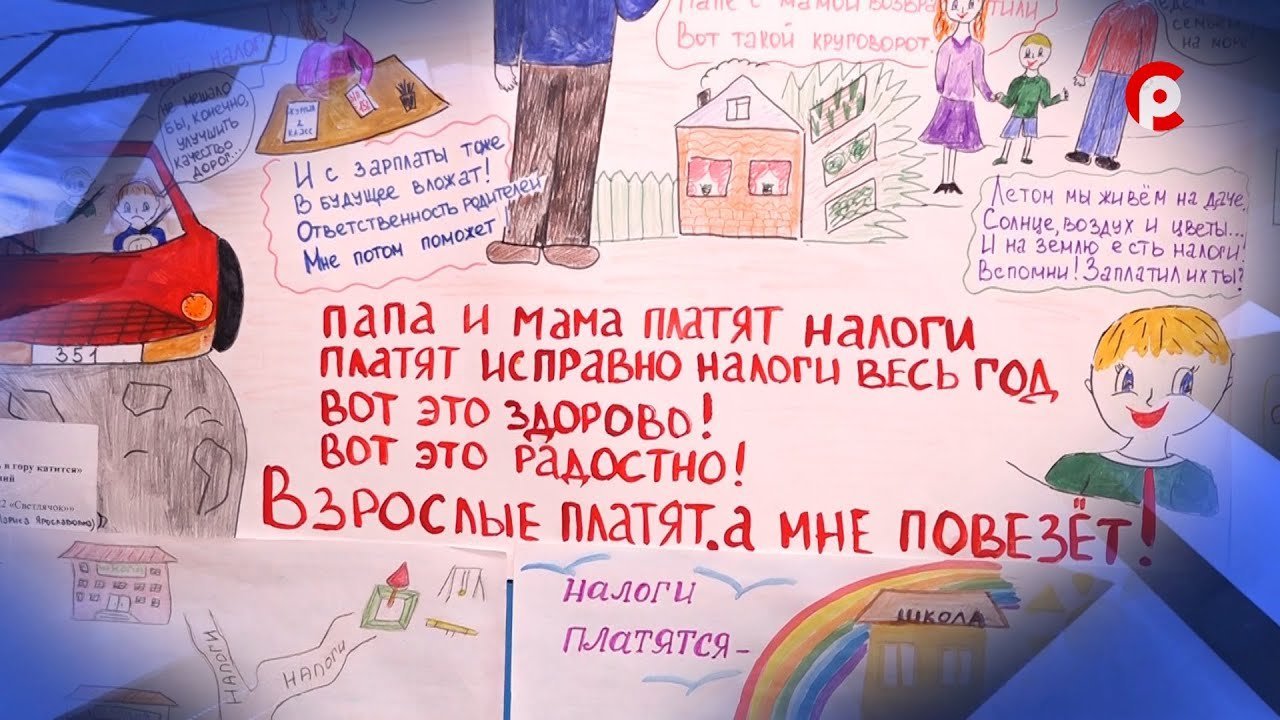 Папе с мамой возвратили
Вот такой круговорот.
семьёй
на море
налоги
не мешало
бы, конечно,
улучшить
качество
дорог...
класс
И с зарплаты тоже
В будущее вложат!
Ответственность родителей
Мне потом поможет!
Летом мы живём на даче,
Солнце, воздух и цветы...
И на землю есть налоги.
Вспомни! Заплатил их ты?
папа и мама платят налоги
платят исправно налоги весь год
вот это здорово!
вот это радостно!
Взрослые платят.а мне повезёт!
351
в гору катится»
2 «Светлячок»»
школа
налоги
налоги
налоги
платятся-
школа